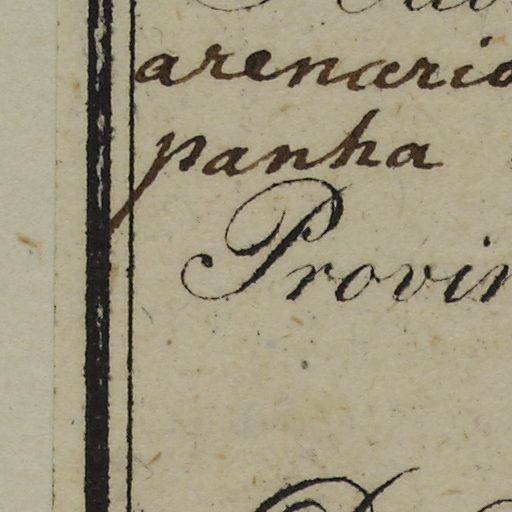 arenario
panha
Provin